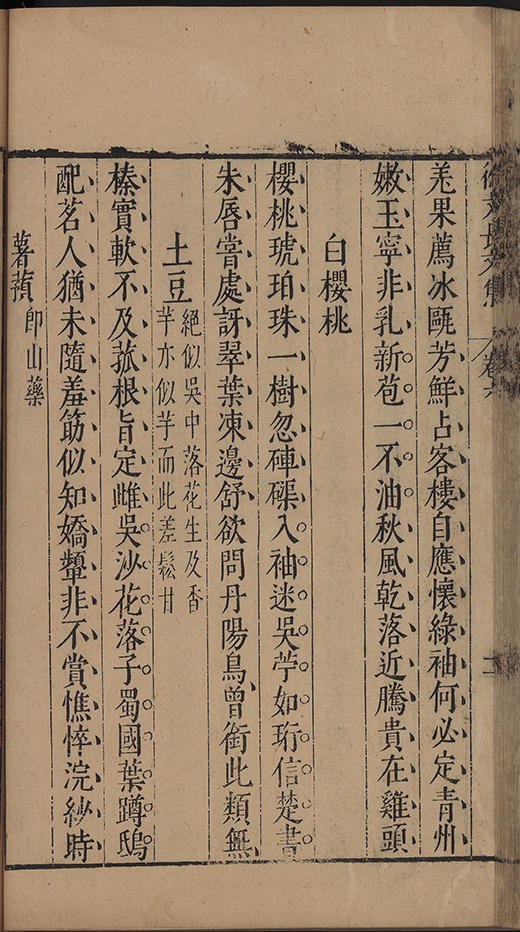 羌果薦冰甌芳鮮占客樓自應懷綠袖何必定青州
嫩玉寧非乳新苞一不油秋風乾落近騰貴在雞頭
白櫻桃
櫻桃琥珀珠一樹忽硨磲入袖迷吳苧如珩信楚書
朱唇嘗處訝翠葉凍邊舒欲問丹陽鳥曾銜此類無
土豆
絕似吳中落花生及香
芋亦似芋而此差鬆甘
榛實軟不及菰根旨定雌吳沙花落子蜀國葉蹲鴟
配茗人猶未隨羞筯似知嬌顰非不賞憔悴浣紗時
薯蕷
即山藥